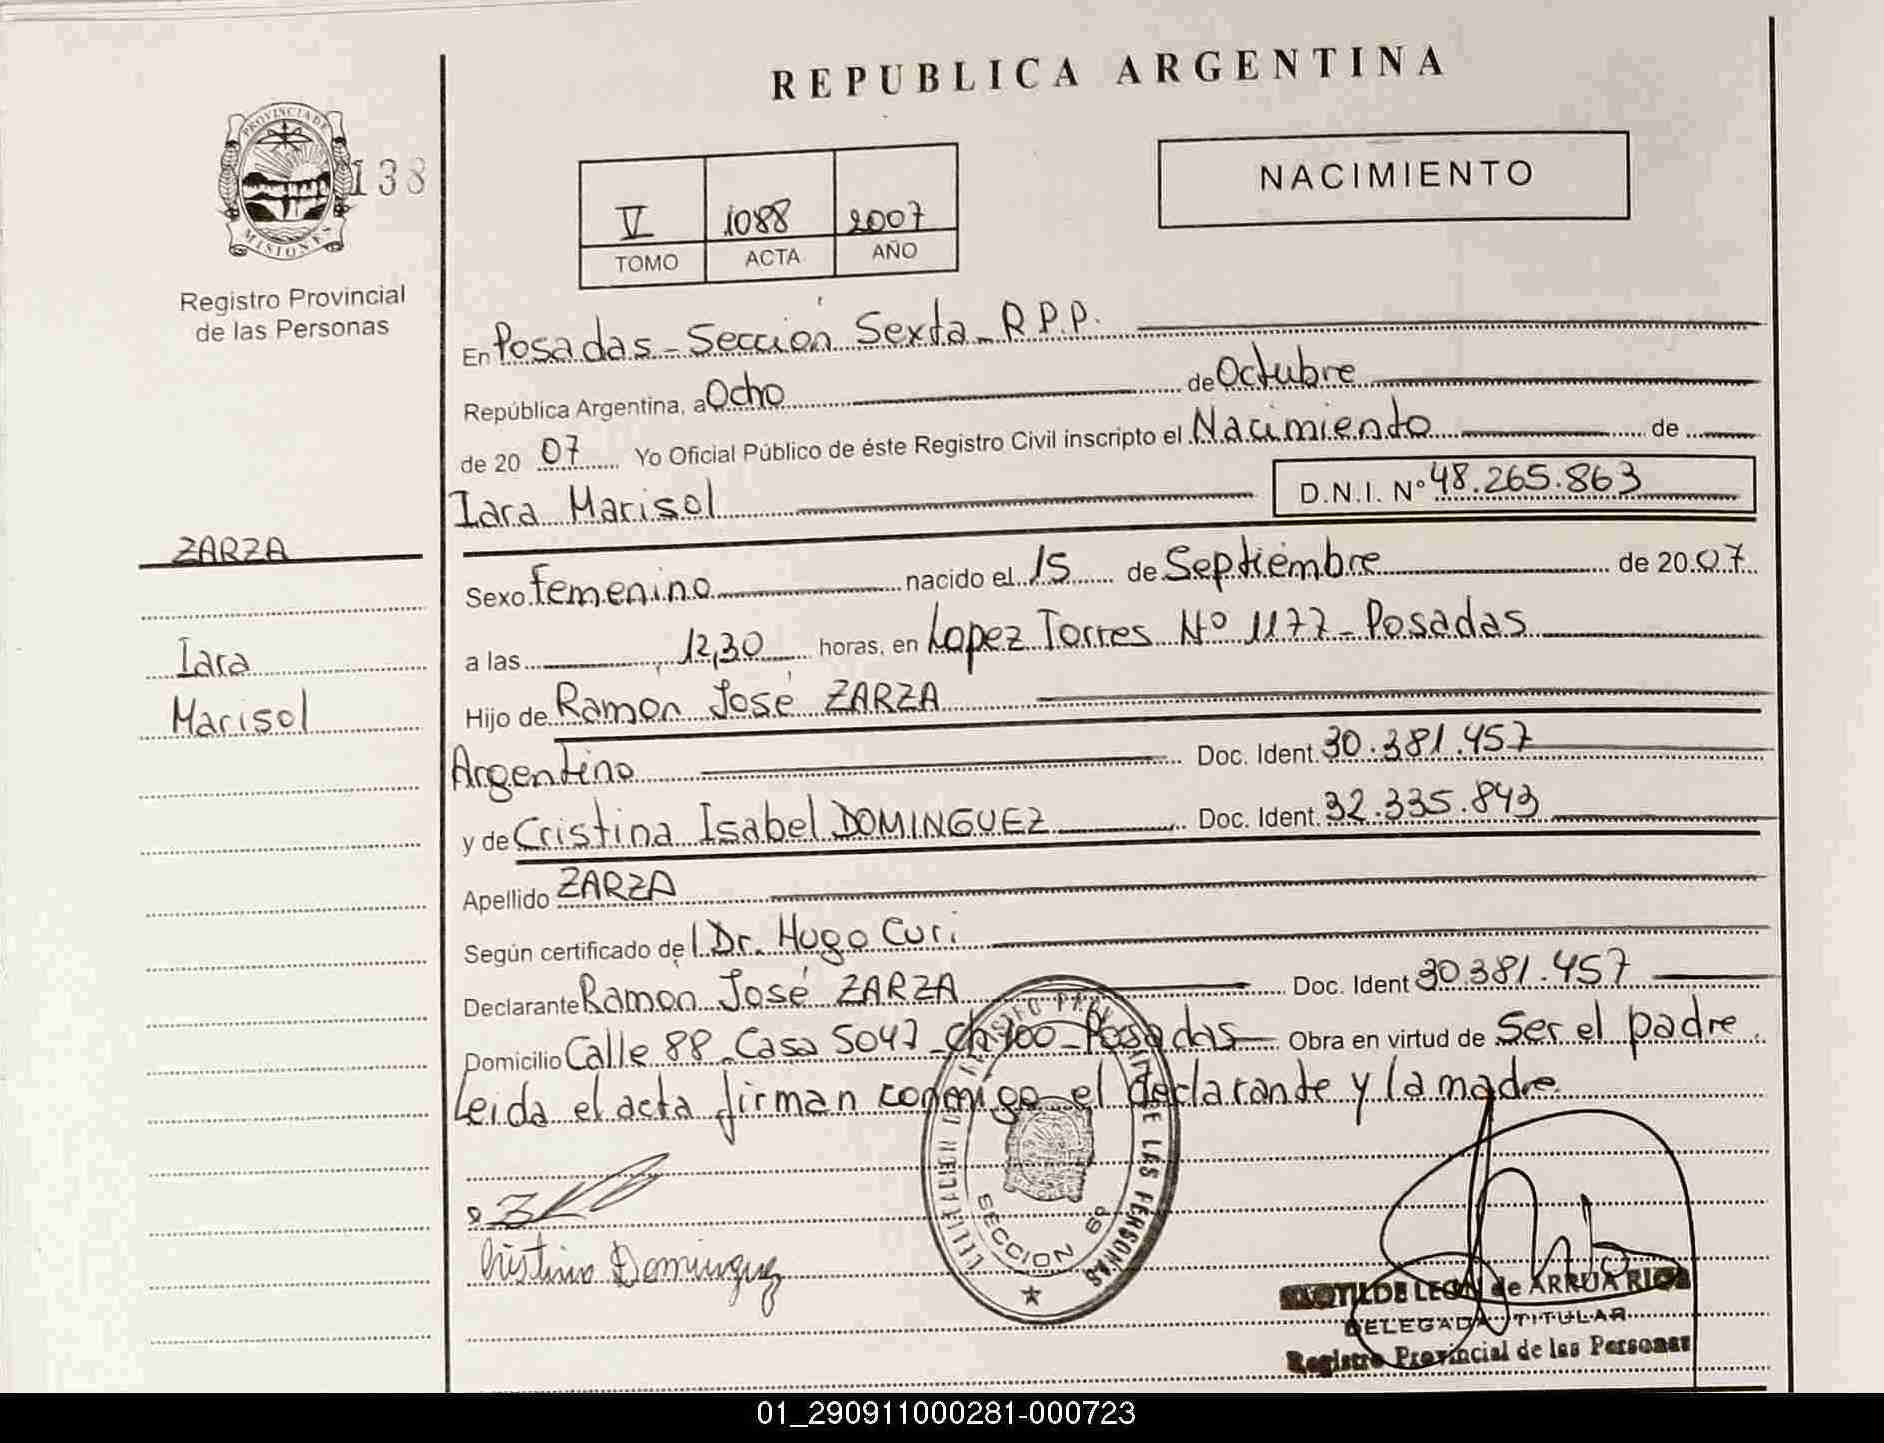 REPUBLICA ARGENTINA
PROVINCIA DE
MISIONES
138
Registro Provincial
de las Personas
V 1088 2007
TOMO ACTA AÑO
NACIMIENTO
En Posadas - Sección Sexta - R.P.P.
República Argentina, a Ocho de Octubre
de 20 07 Yo Oficial Público de éste Registro Civil inscripto el Nacimiento de
Iara Marisol D.N.I. Nº 48.265.863
ZARZA
Iara
Marisol
Sexo femenino nacido el 15 de Septiembre de 20 07
a las 12,30 horas, en Lopez Torres Nº 1177 - Posadas
Hijo de Ramón José ZARZA
Argentino Doc. Ident. 30.381.457
y de Cristina Isabel DOMINGUEZ Doc. Ident. 32.335.843
Apellido ZARZA
Según certificado de l Dr. Hugo Curi
Declarante Ramón José ZARZA Doc. Ident 30.381.457
Domicilio Calle 88 - Casa 5047 - Ch 100 - Posadas Obra en virtud de Ser el padre
Leida el acta firman conmigo el declarante y la madre
DE LAS PERSONAS
SECCION 6º
Cristina Dominguez
de ARRUA
DELEGADA TITULAR
Registro Provincial de las Personas
01_290911000281-000723